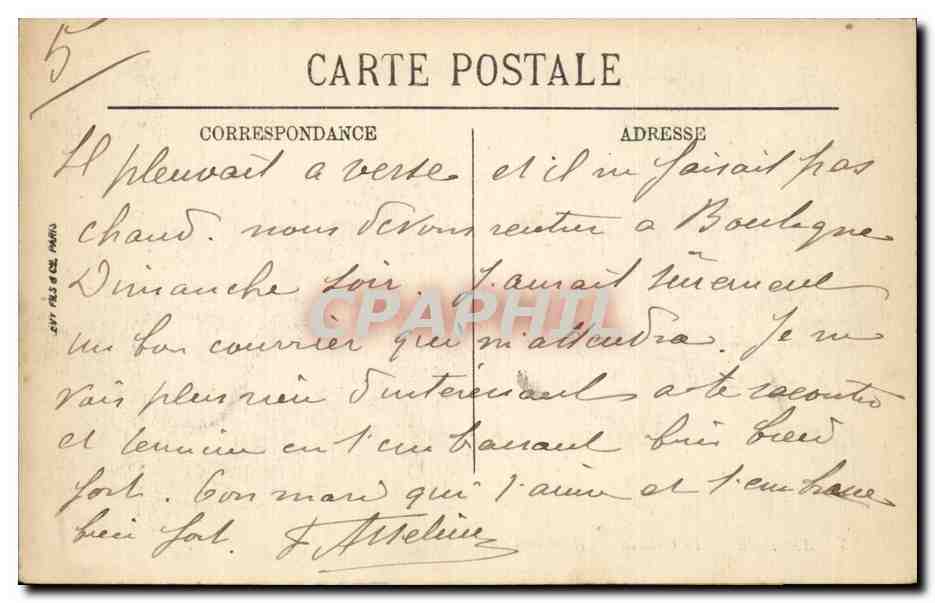 5
CARTE POSTALE
CORRESPONDANCE
ADRESSE
Il pleuvait a verse et il ne faisait pas
chaud. nous devons rentrer a Boulogne
Dimanche soir. J'aurait sûrement
un bon courrier qui m'attendra. Je ne
vois plus rien d'intéressant a te raconter
et termine en t'embrassant bien bien
fort. Ton mari qui t'aime et t'embrasse
bien fort. F Asseline
LEVY FILS & CIE, PARIS
CPAPHIL